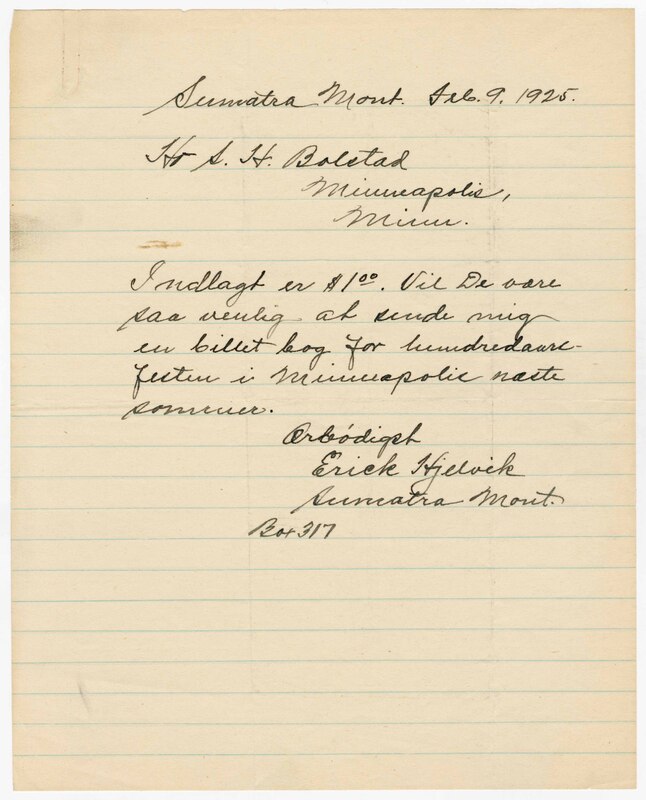 Sumatra Mont. Feb. 9. 1925.
Hr S. H. Bolstad
Minneapolis,
Minn.
Indlagt er $1.00. Vil De være
saa venlig at sende mig
en billet bog for hundredaars-
festen i Minneapolis næste
sommer.
Ærbödigst
Erick Hjelvik
Sumatra Mont.
Box 317